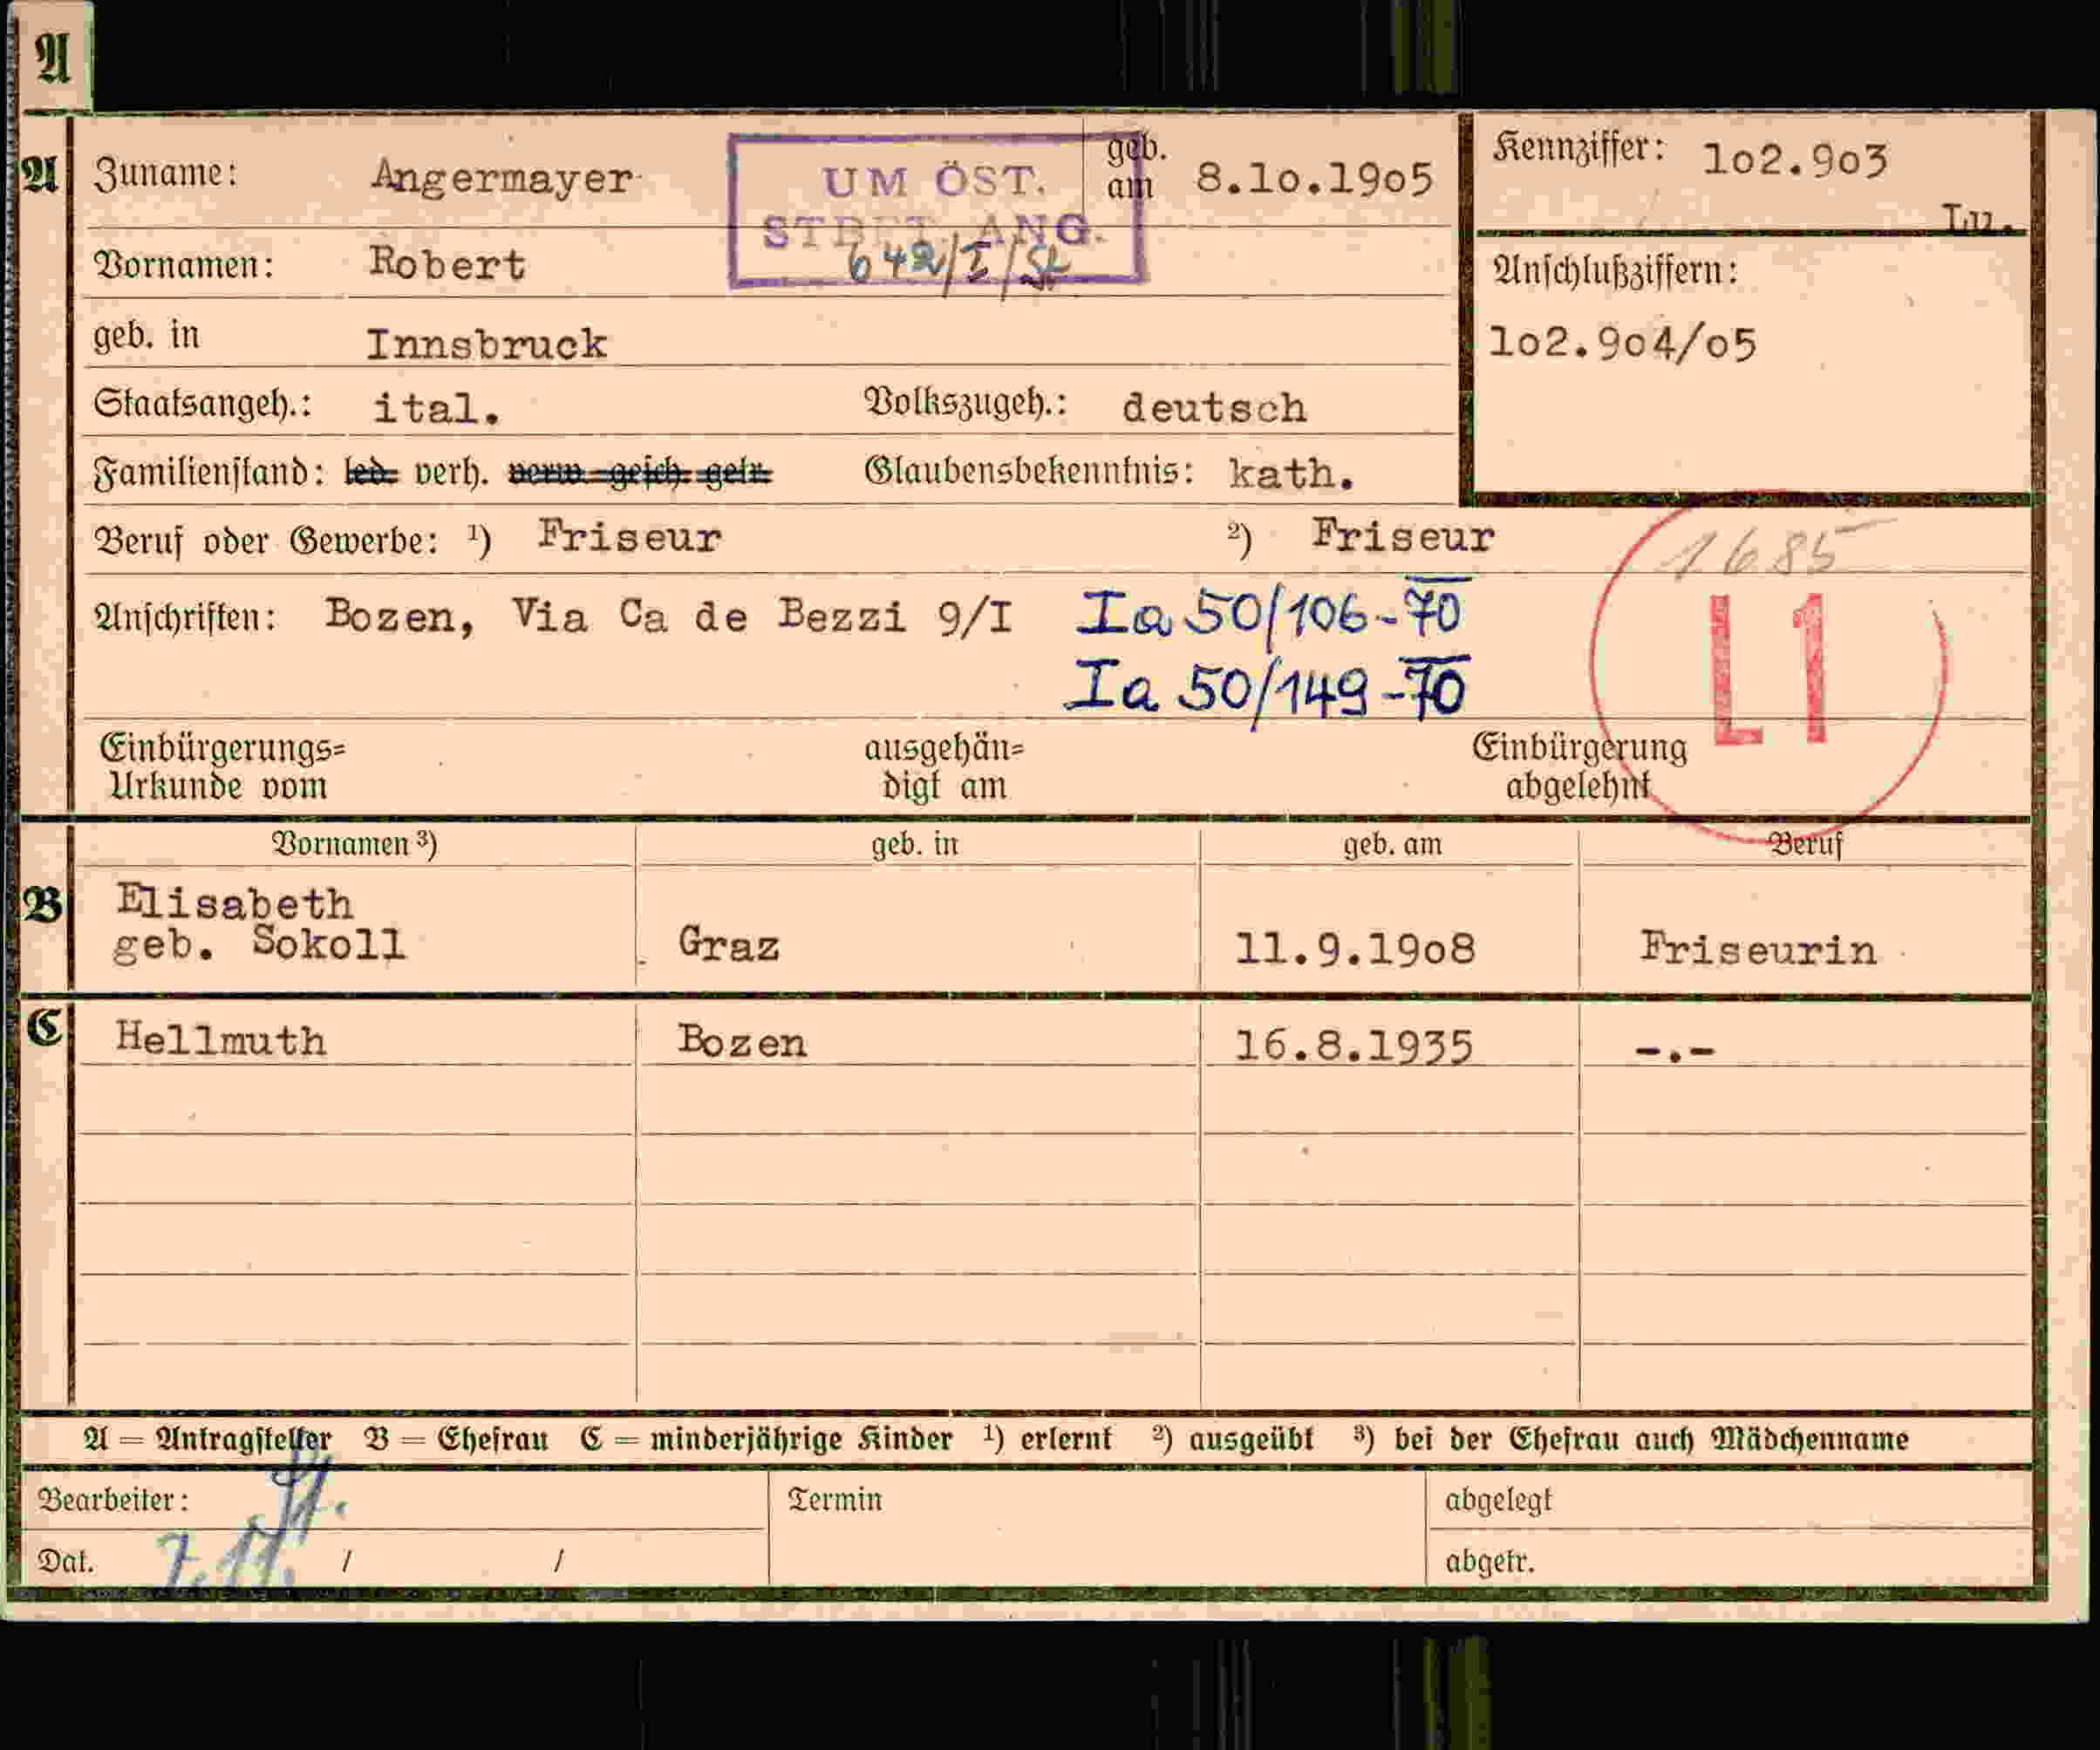 A
A Zuname: Angermayer geb. am 8.10.1905 Kennziffer: 102.903
UM ÖST.
STBET. ANG.
Lu.
Vornamen: Robert Anschlußziffern:
geb. in Innsbruck 102.904/05
Staatsangeh.: ital. Volkszugeh.: deutsch
Familienstand: led. verh. verw. gesch. getr. Glaubensbekenntnis: kath.
Beruf oder Gewerbe: ¹) Friseur ²) Friseur
1685
Anschriften: Bozen, Via Ca de Bezzi 9/I Ia 50/106-70
Ia 50/149-70
L1
Einbürgerungs= ausgehän= Einbürgerung
Urkunde vom digt am abgelehnt
Vornamen ³) geb. in geb. am Beruf
B Elisabeth
geb. Sokoll Graz 11.9.1908 Friseurin
C Hellmuth Bozen 16.8.1935 -.-
A = Antragsteller B = Ehefrau C = minderjährige Kinder ¹) erlernt ²) ausgeübt ³) bei der Ehefrau auch Mädchenname
Bearbeiter: Termin abgelegt
Dat. 7.11. / / abgetr.